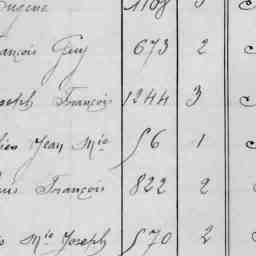 Eugène 1108
François Guy 673 2
Joseph François 1244 3
Jean Mie 56 1
François 822 2
Mie Joseph 570 2